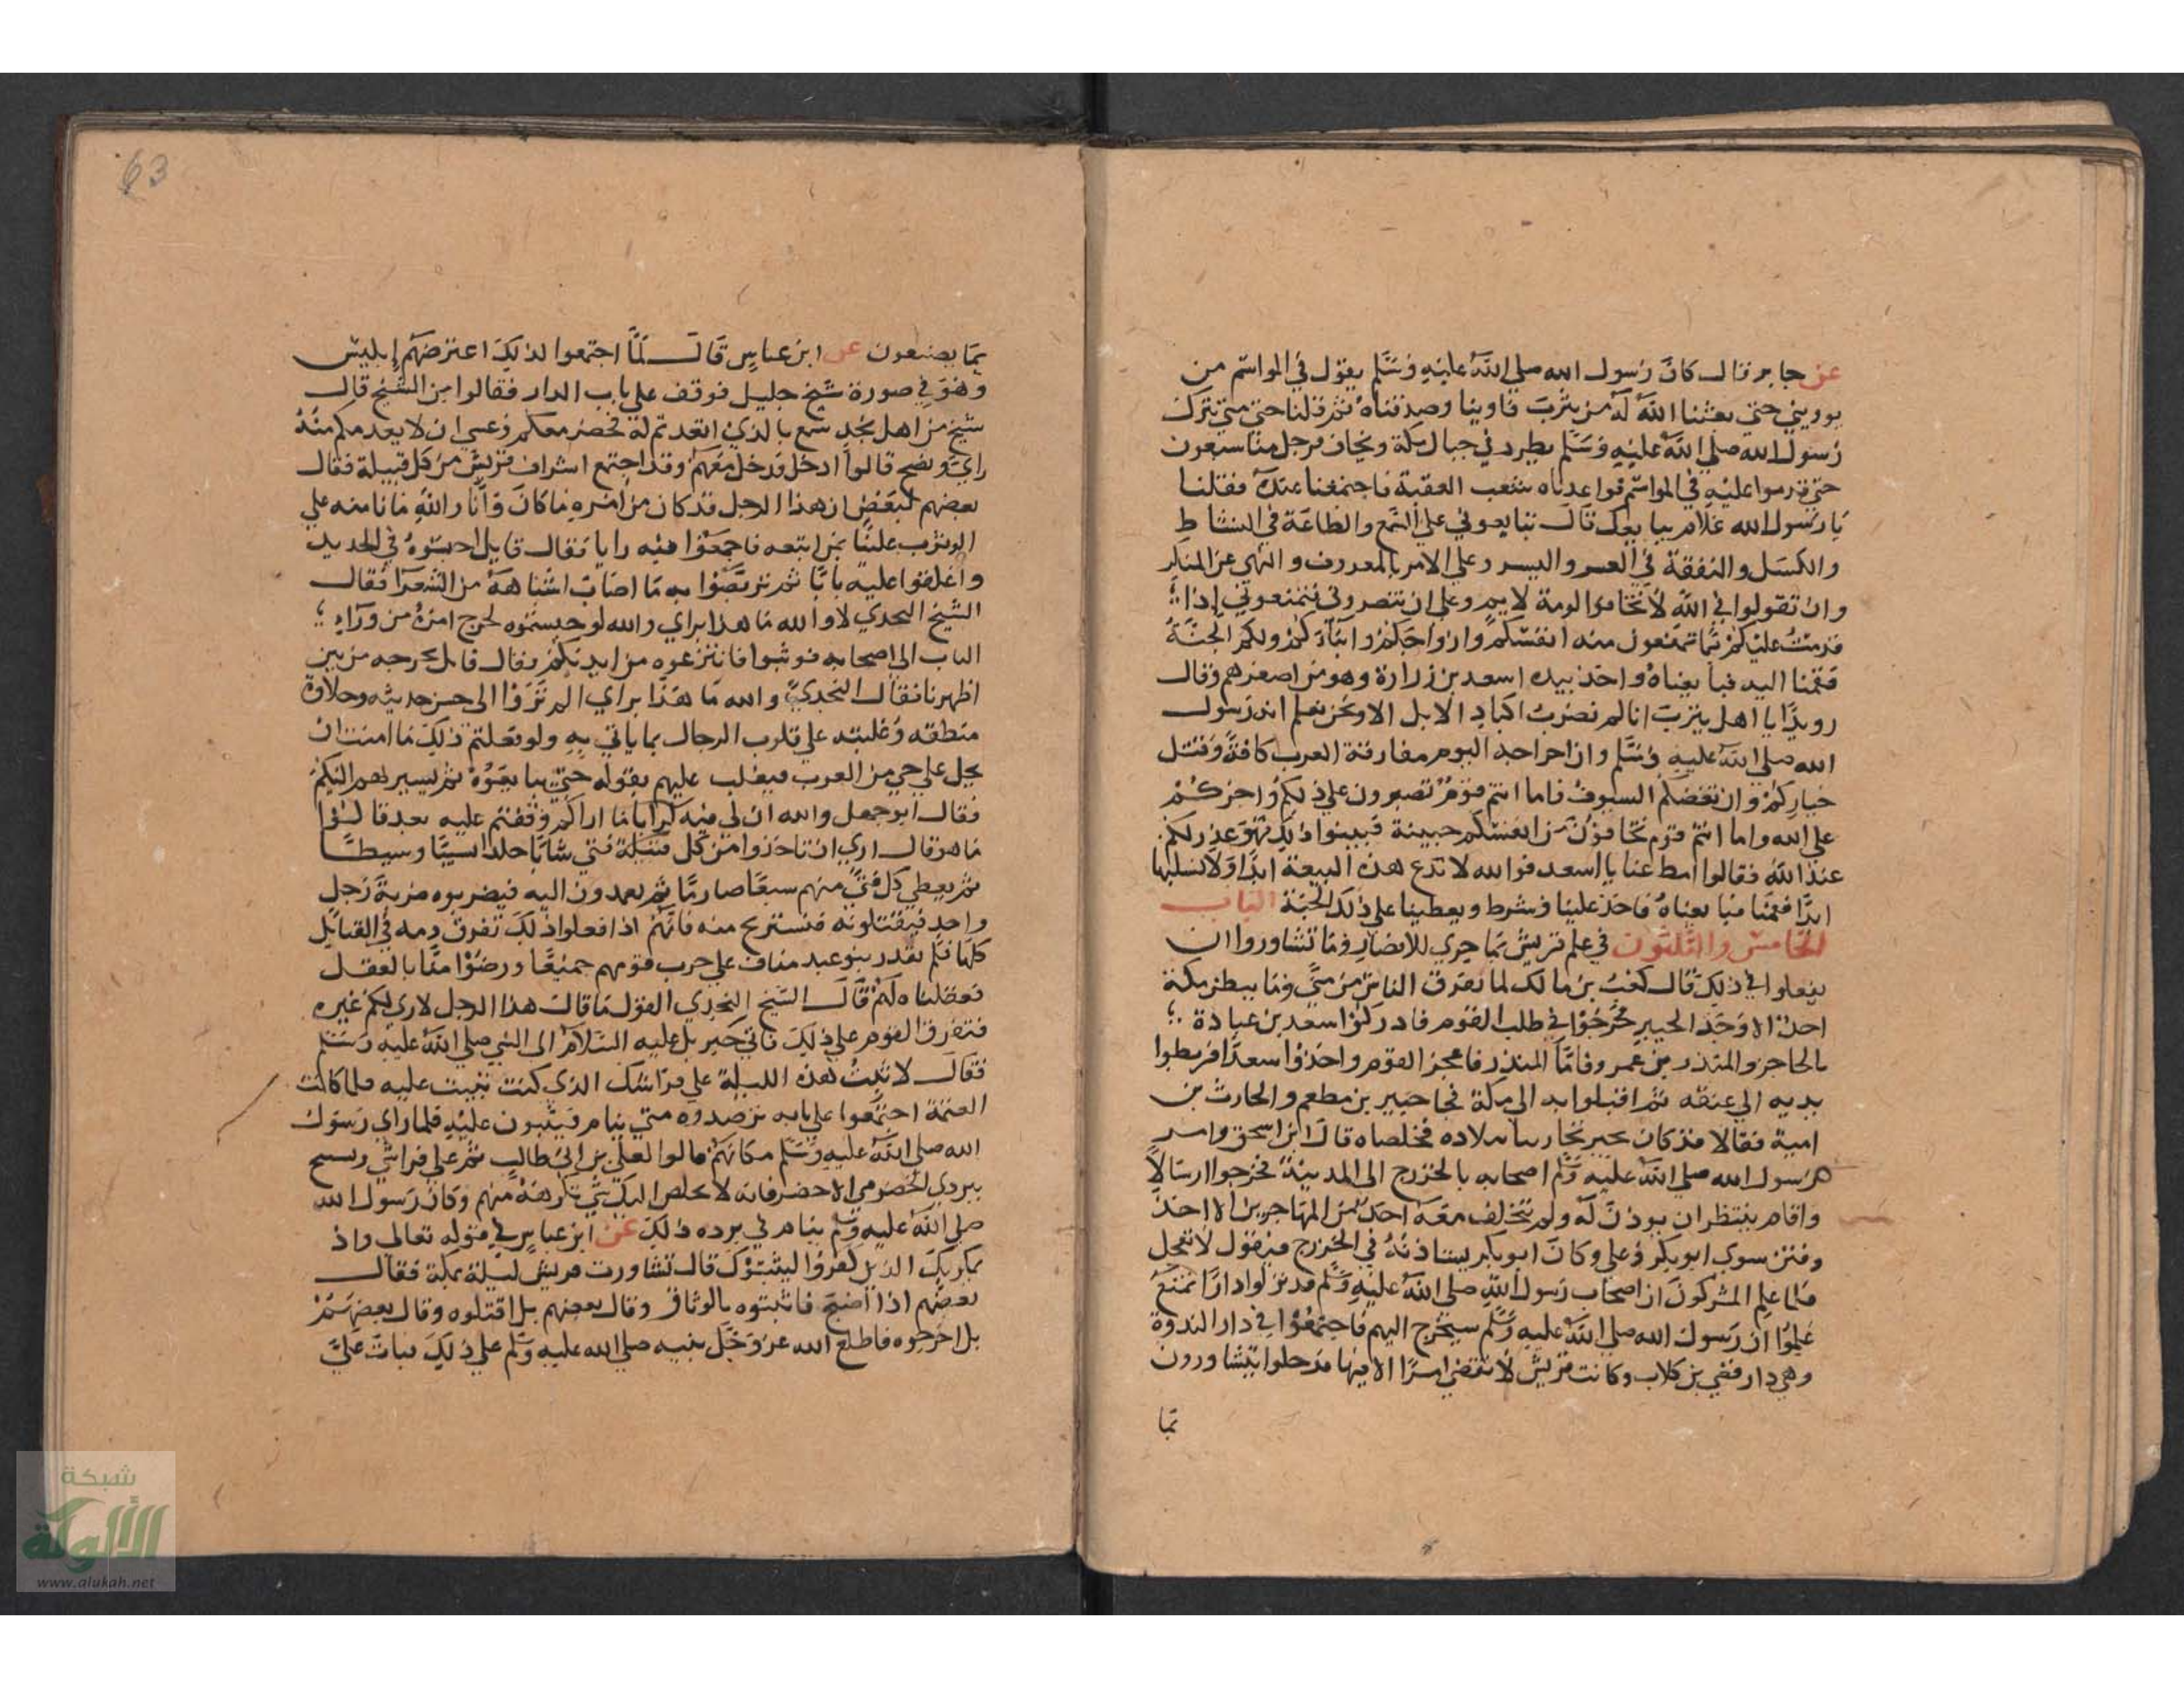 عن جابر قال كان رسول الله صلي الله عليه وسلم يقول في المواسم من
يوويني حتى بعثنا الله له من يثرب فاوينا وصدقناه ثم قلنا حتي متي نترك
رسول الله صلي الله عليه وسلم يطرد في جبال مكة ويخاف فرحل منا سبعون
حتي قدموا عليه في المواسم فواعدناه شعب العقبة فاجتمعنا عنده فقلنا
يا رسول الله علام نبايعك قال تبايعوني علي السمع والطاعة في النشاط
والكسل والنفقة في العسر واليسر وعلي الامر بالمعروف والنهي عن المنكر
وان تقولوا في الله لا تخافوا لومة لايم وعلي ان تنصروني فتمنعوني إذا
قدمت عليكم مما تمنعون منه انفسكم وازواجكم وابناءكم ولكم الجنة
فقمنا اليه فبايعناه واخذ بيده اسعد بن زرارة وهو من اصغرهم وقال
رويدًا يا اهل يثرب انا لم نضرب اكباد الابل الا ونحن نعلم انه رسول
الله صلي الله عليه وسلم وان اخراجه اليوم مفارقة العرب كافة وقتل
خياركم وان تعضكم السيوف فاما انتم قوم تصبرون علي ذلكم واجركم
علي الله واما انتم قوم تخافون من انفسكم جبينة فبينوا ذلك فهو عذر لكم
عند الله فقالوا امط عنا يا اسعد فوالله لا ندع هذه البيعة ابدًا ولا نسلبها
ابدًا فقمنا فبايعناه فاخذ علينا وشرط ويعطينا علي ذلك الجنة الباب
الخامس والثلثون في علم قريش بما جري للانصار وما تشاوروا ان
يفعلوا في ذلك قال كعب بن مالك لما تفرق الناس من مني وما ببطن مكة
احد الا وجد الخبير فخرجوا في طلب القوم فادركوا سعد بن عبادة
بالحاجز والمنذر بن عمرو فاما المنذر فاعجز القوم واخذوا سعدًا فربطوا
يديه الي عنقه ثم اقبلوا به الى مكة فجا جبير بن مطعم والحارث بن
امية فقالا قد كان يجير تجارنا ببلاده فخلصاه قال ابن اسحق وامر
رسول الله صلي الله عليه وسلم اصحابه بالخروج الى المدينة فخرجوا ارسالاً
واقام ينتظر ان يوذن له ولم يتخلف معه احد من المهاجرين الا اخذ
وفتن سوي ابو بكر وعلي وكان ابو بكر يستاذنه في الخروج فيقول لا تعجل
فلما علم المشركون ان اصحاب رسول الله صلي الله عليه وسلم قد نزلوا دارًا تمنع
علموا ان رسول الله صلي الله عليه وسلم سيخرج اليهم فاجتمعوا في دار الندوة
وهي دار قصي بن كلاب وكانت قريش لا تقضي امرًا الا فيها فدخلوا يتشاورون
بما
63
بما يصنعون عن ابن عباس قال لما اجتمعوا لذلك اعترضهم إبليس
وهو في صورة شيخ جليل فوقف علي باب الدار فقالوا من الشيخ قال
شيخ من اهل نجد سمع بالذي اتعدتم له فحضر معكم وعسي ان لا يعدمكم منه
راي ونصح قالوا ادخل فدخل معهم وقد اجتمع اشراف قريش من كل قبيلة فقال
بعضهم لبعض ان هذا الرجل قد كان من امره ما كان وانا والله ما نامنه علي
الوثوب علينا بمن اتبعه فاجمعوا فيه رايا فقال قايل احبسوه في الحديد
واغلقوا عليه بابًا ثم تربصوا به ما اصاب اشباهه من الشعرا فقال
الشيخ النجدي لا والله ما هذا براي والله لو حبستموه لخرج امره من وراء
الباب الي اصحابه فوثبوا فانتزعوه من ايديكم وقال قايل نخرجه من بين
اظهرنا فقال النجدي والله ما هذا براي الم تروا الى حسن حديثه وحلاوة
منطقه وغلبته علي قلوب الرجال بما ياتي به ولو فعلتم ذلك ما امنت ان
يحل علي حي من العرب فيغلب عليهم بقوله حتي يبايعوه ثم يسير بهم اليكم
فقال ابو جهل والله ان لي فيه لرايا ما اراكم وقفتم عليه بعد قالوا
ما هو قال اري ان تاخذوا من كل قبيلة فتي شابًا جلدا نسيبًا وسيطًا
ثم يعطي كل فتي منهم سيفًا صارمًا ثم يعمدون اليه فيضربوه ضربة رجل
واحد فيقتلونه فنستريح منه فانهم اذا فعلوا ذلك تفرق دمه في القبايل
كلها فلم يقدر بنو عبد مناف علي حرب قومهم جميعًا ورضوا منا بالعقل
فعقلناه لهم قال الشيخ النجدي القول ما قال هذا الرجل لا راي لكم غيره
فتفرق القوم علي ذلك فاتي جبريل عليه السلام الى النبي صلي الله عليه وسلم
فقال لا تبت هذه الليلة علي فراشك الذي كنت تبيت عليه فلما كانت
العتمة اجتمعوا علي بابه ترصدوه متي ينام فيثبون عليه فلما راي رسول
الله صلي الله عليه وسلم مكانهم قالوا لعلي بن ابي طالب نم علي فراشي وتسبح
ببردي الحضرمي الاخضر فانه لا يخلص اليك شي تكرهه منهم وكان رسول الله
صلي الله عليه وسلم ينام في برده ذلك عن ابن عباس في قوله تعالى واذ
يمكر بك الذين كفروا ليثبتوك قال تشاورت قريش ليلة بمكة فقال
بعضهم اذا اصبح فاثبتوه بالوثاق وقال بعضهم بل اقتلوه وقال بعضهم
بل اخرجوه فاطلع الله عز وجل نبيه صلي الله عليه وسلم علي ذلك فبات علي
شبكة
الألوكة
www.alukah.net